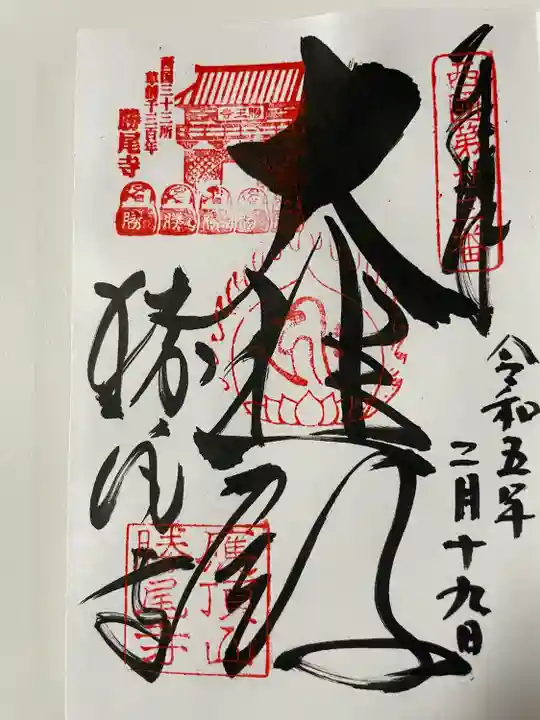 奉拝
西国第廿三番
令和五年
二月十九日
大悲殿
西国三十三所
草創千三百年
勝尾寺
勝
勝
勝
應頂山
勝尾寺